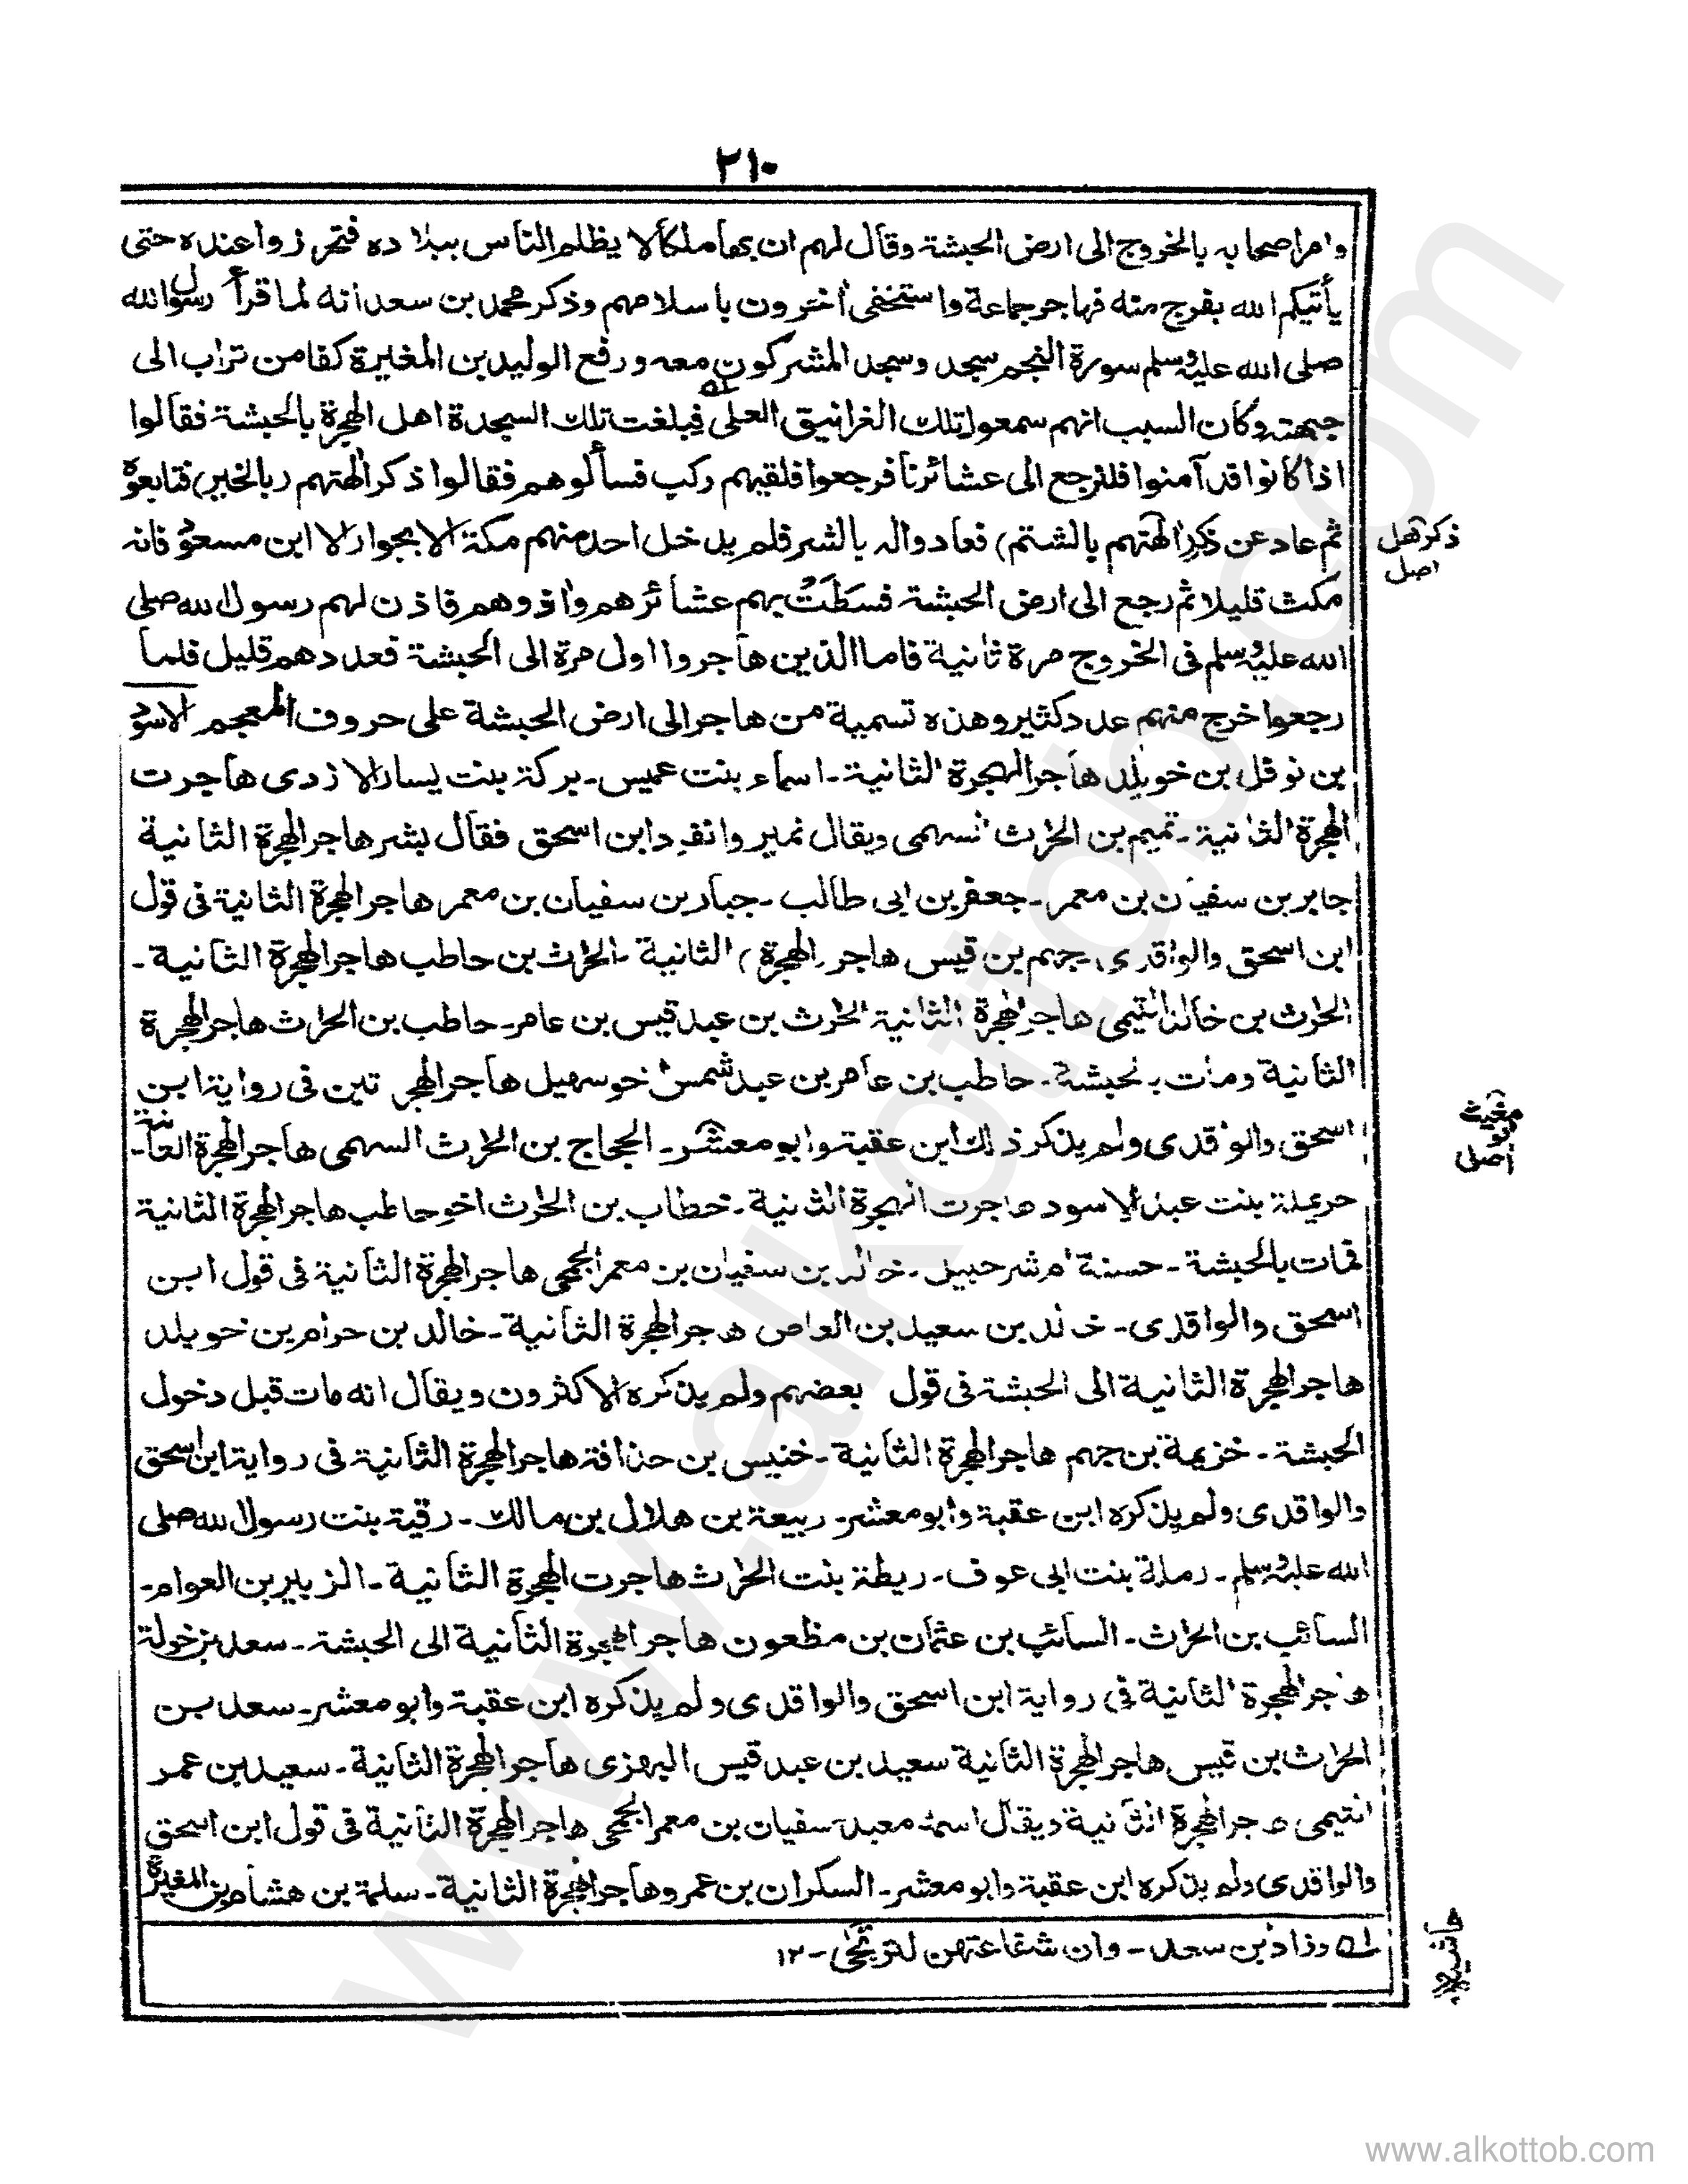 ٢١٠
وامر اصحابه بالخروج الى ارض الحبشة وقال لهم ان بها ملكا لا يظلم الناس ببلاده فتحرزوا عنده حتى
يأتيكم الله بفرج منه فهاجر جماعة واستخفى اخرون باسلامهم وذكر محمد بن سعد انه لما قرأ رسول الله
صلى الله عليه وسلم سورة النجم سجد وسجد المشركون معه ورفع الوليد بن المغيرة كفا من تراب الى
جبهته وكان السبب انهم سمعوا تلك الغرانيق العلى فبلغت تلك السجدة اهل الهجرة بالحبشة فقالوا
اذا كانوا قد آمنوا فلنرجع الى عشائرنا فرجعوا فلقيهم ركب فسألوهم فقالوا ذكر الهتهم (بالخير) فتابعوه
ثم عاد عن ذكر الهتهم بالشتم) فعادوا له بالشر فلم يدخل احد منهم مكة الا بجوار الا ابن مسعود فانه
مكث قليلا ثم رجع الى ارض الحبشة فسطت بهم عشائرهم واذوهم فاذن لهم رسول الله صلى
الله عليه وسلم فى الخروج مرة ثانية فاما الذين هاجروا اول مرة الى الحبشة فعددهم قليل فلما
رجعوا خرج منهم عدد كثير وهذه تسمية من هاجر الى ارض الحبشة على حروف المعجم الاسود
بن نوفل بن خويلد هاجر الهجرة الثانية - اسماء بنت عميس - بركة بنت يسار الازدى هاجرت
الهجرة الثانية - تميم بن الحرث السهمى ويقال نمير وانفرد ابن اسحق فقال بشر هاجر الهجرة الثانية
جابر بن سفيان بن معمر - جعفر بن ابى طالب - جبار بن سفيان بن معمر هاجر الهجرة الثانية فى قول
ابن اسحق والواقدى - جهم بن قيس هاجر (الهجرة) الثانية - الحرث بن حاطب هاجر الهجرة الثانية -
الحرث بن خالد التيمى هاجر الهجرة الثانية الحرث بن عبد قيس بن عامر - حاطب بن الحرث هاجر الهجرة
الثانية ومات بالحبشة - حاطب بن عامر بن عبد شمس اخو سهيل هاجر الهجرتين فى رواية ابن
اسحق والواقدى ولم يذكر ذلك ابن عقبة وابو معشر - الحجاج بن الحرث السهمى هاجر الهجرة الثانية -
حريملة بنت عبد الاسود هاجرت الهجرة الثانية - خطاب بن الحرث اخو حاطب هاجر الهجرة الثانية
فمات بالحبشة - حسنة ام شرحبيل - خالد بن سفيان بن معمر الجمحى هاجر الهجرة الثانية فى قول ابن
اسحق والواقدى - خالد بن سعيد بن العاص هاجر الهجرة الثانية - خالد بن حزام بن خويلد
هاجر الهجرة الثانية الى الحبشة فى قول بعضهم ولم يذكره الاكثرون ويقال انه مات قبل دخول
الحبشة - خزيمة بن جهم هاجر الهجرة الثانية - خنيس بن حذافة هاجر الهجرة الثانية فى رواية ابن اسحق
والواقدى ولم يذكره ابن عقبة وابو معشر - ربيعة بن هلال بن مالك - رقية بنت رسول الله صلى
الله عليه وسلم - رملة بنت ابى عوف - ريطة بنت الحرث هاجرت الهجرة الثانية - الزبير بن العوام -
السائب بن الحرث - السائب بن عثمان بن مظعون هاجر الهجرة الثانية الى الحبشة - سعد بن خولة
هاجر الهجرة الثانية فى رواية ابن اسحق والواقدى ولم يذكره ابن عقبة وابو معشر - سعد بن
الحرث بن قيس هاجر الهجرة الثانية سعيد بن عبد قيس البهزى هاجر الهجرة الثانية - سعيد بن عمر
التيمى هاجر الهجرة الثانية ويقال اسمه معبد - سفيان بن معمر الجمحى هاجر الهجرة الثانية فى قول ابن اسحق
والواقدى ولم يذكره ابن عقبة وابو معشر - السكران بن عمرو هاجر الهجرة الثانية - سلمة بن هشام بن المغيرة
وزاد بن سعد - وان شفاعتهن لترتجى - ١٢
اصل
اصل
حاشيه
www.alkottob.com
www.alkottob.com